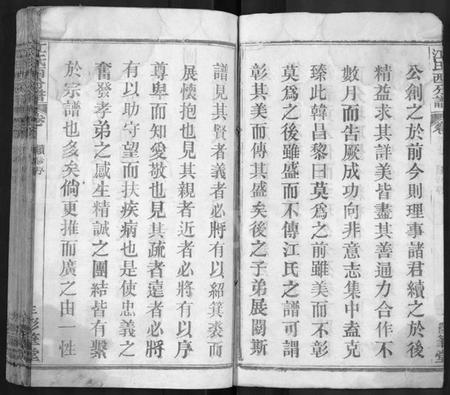 公創之於前今則理事諸君續之於後
精益求其詳美皆盡其善通力合作不
數月而告厥成功向非意志集中盍克
臻此韓昌黎曰莫爲之前雖美而不彰
莫爲之後雖盛而不傳江氏之譜可謂
彰其美而傳其盛矣後之子弟展閱斯
譜見其賢者義者必將有以紹箕裘而
展懷抱也見其親者近者必將有以序
尊卑而知愛敬也見其疏者遠者必將
有以助守望而扶疾病也是使忠義之
奮發孝弟之感生精誠之團結皆有繫
於宗譜也多矣倘更推而廣之由一性